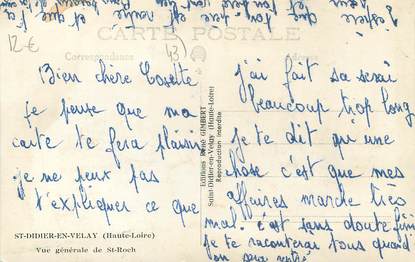 CARTE POSTALE
Correspondance
12 €
43)
Bien chère Cosette
je pense que ma
carte te fera plaisir
je ne peux pas
t'expliquer ce que
j'ai fait sa serai
beaucoup trop long
je te dit qu'une
chose c'est que mes
affaires marche très
mal. c'est sans doute fini
je te raconterai tous quand
on sera
J'espère que ton père
et que
Editions René GIMBERT
Saint-Didier-en-Velay (Haute-Loire)
Reproduction interdite
ST-DIDIER-EN-VELAY (Haute-Loire)
Vue générale de St-Roch